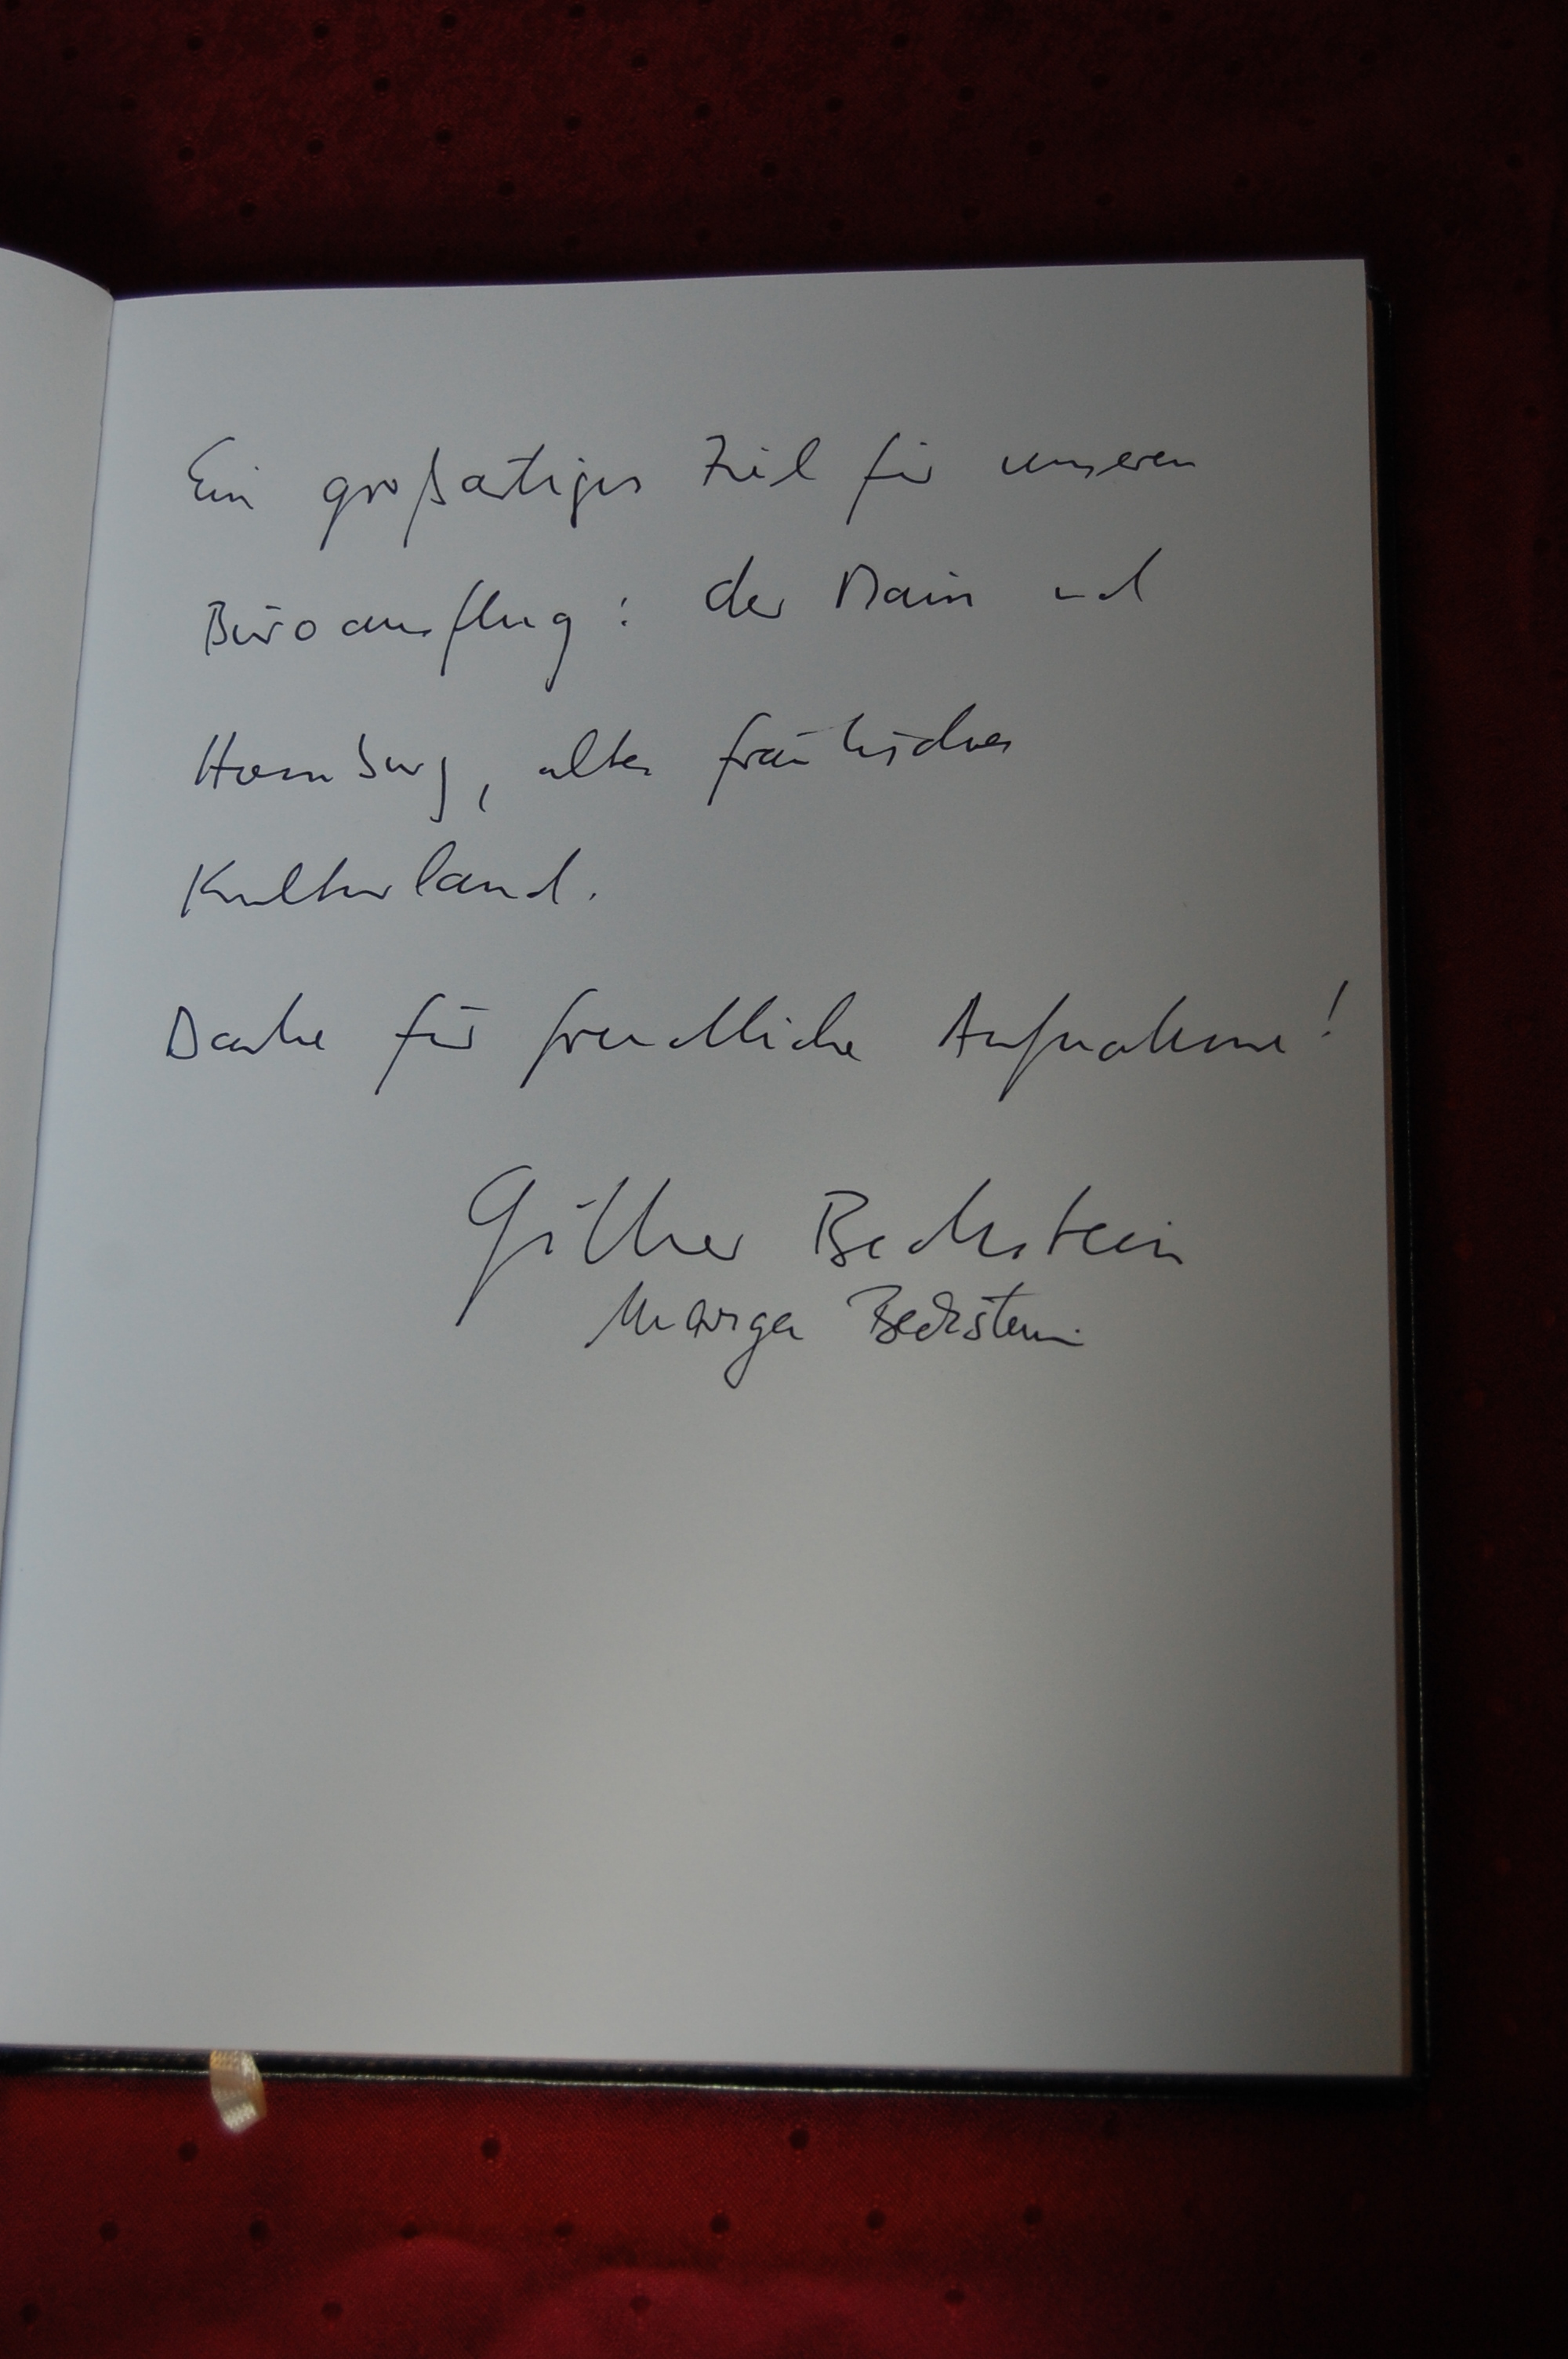 Ein großartiges Ziel für unseren
Büroausflug: der Main und
Homburg, altes fränkisches
Kulturland.
Danke für freundliche Aufnahme!
Günther Beckstein
Marga Beckstein